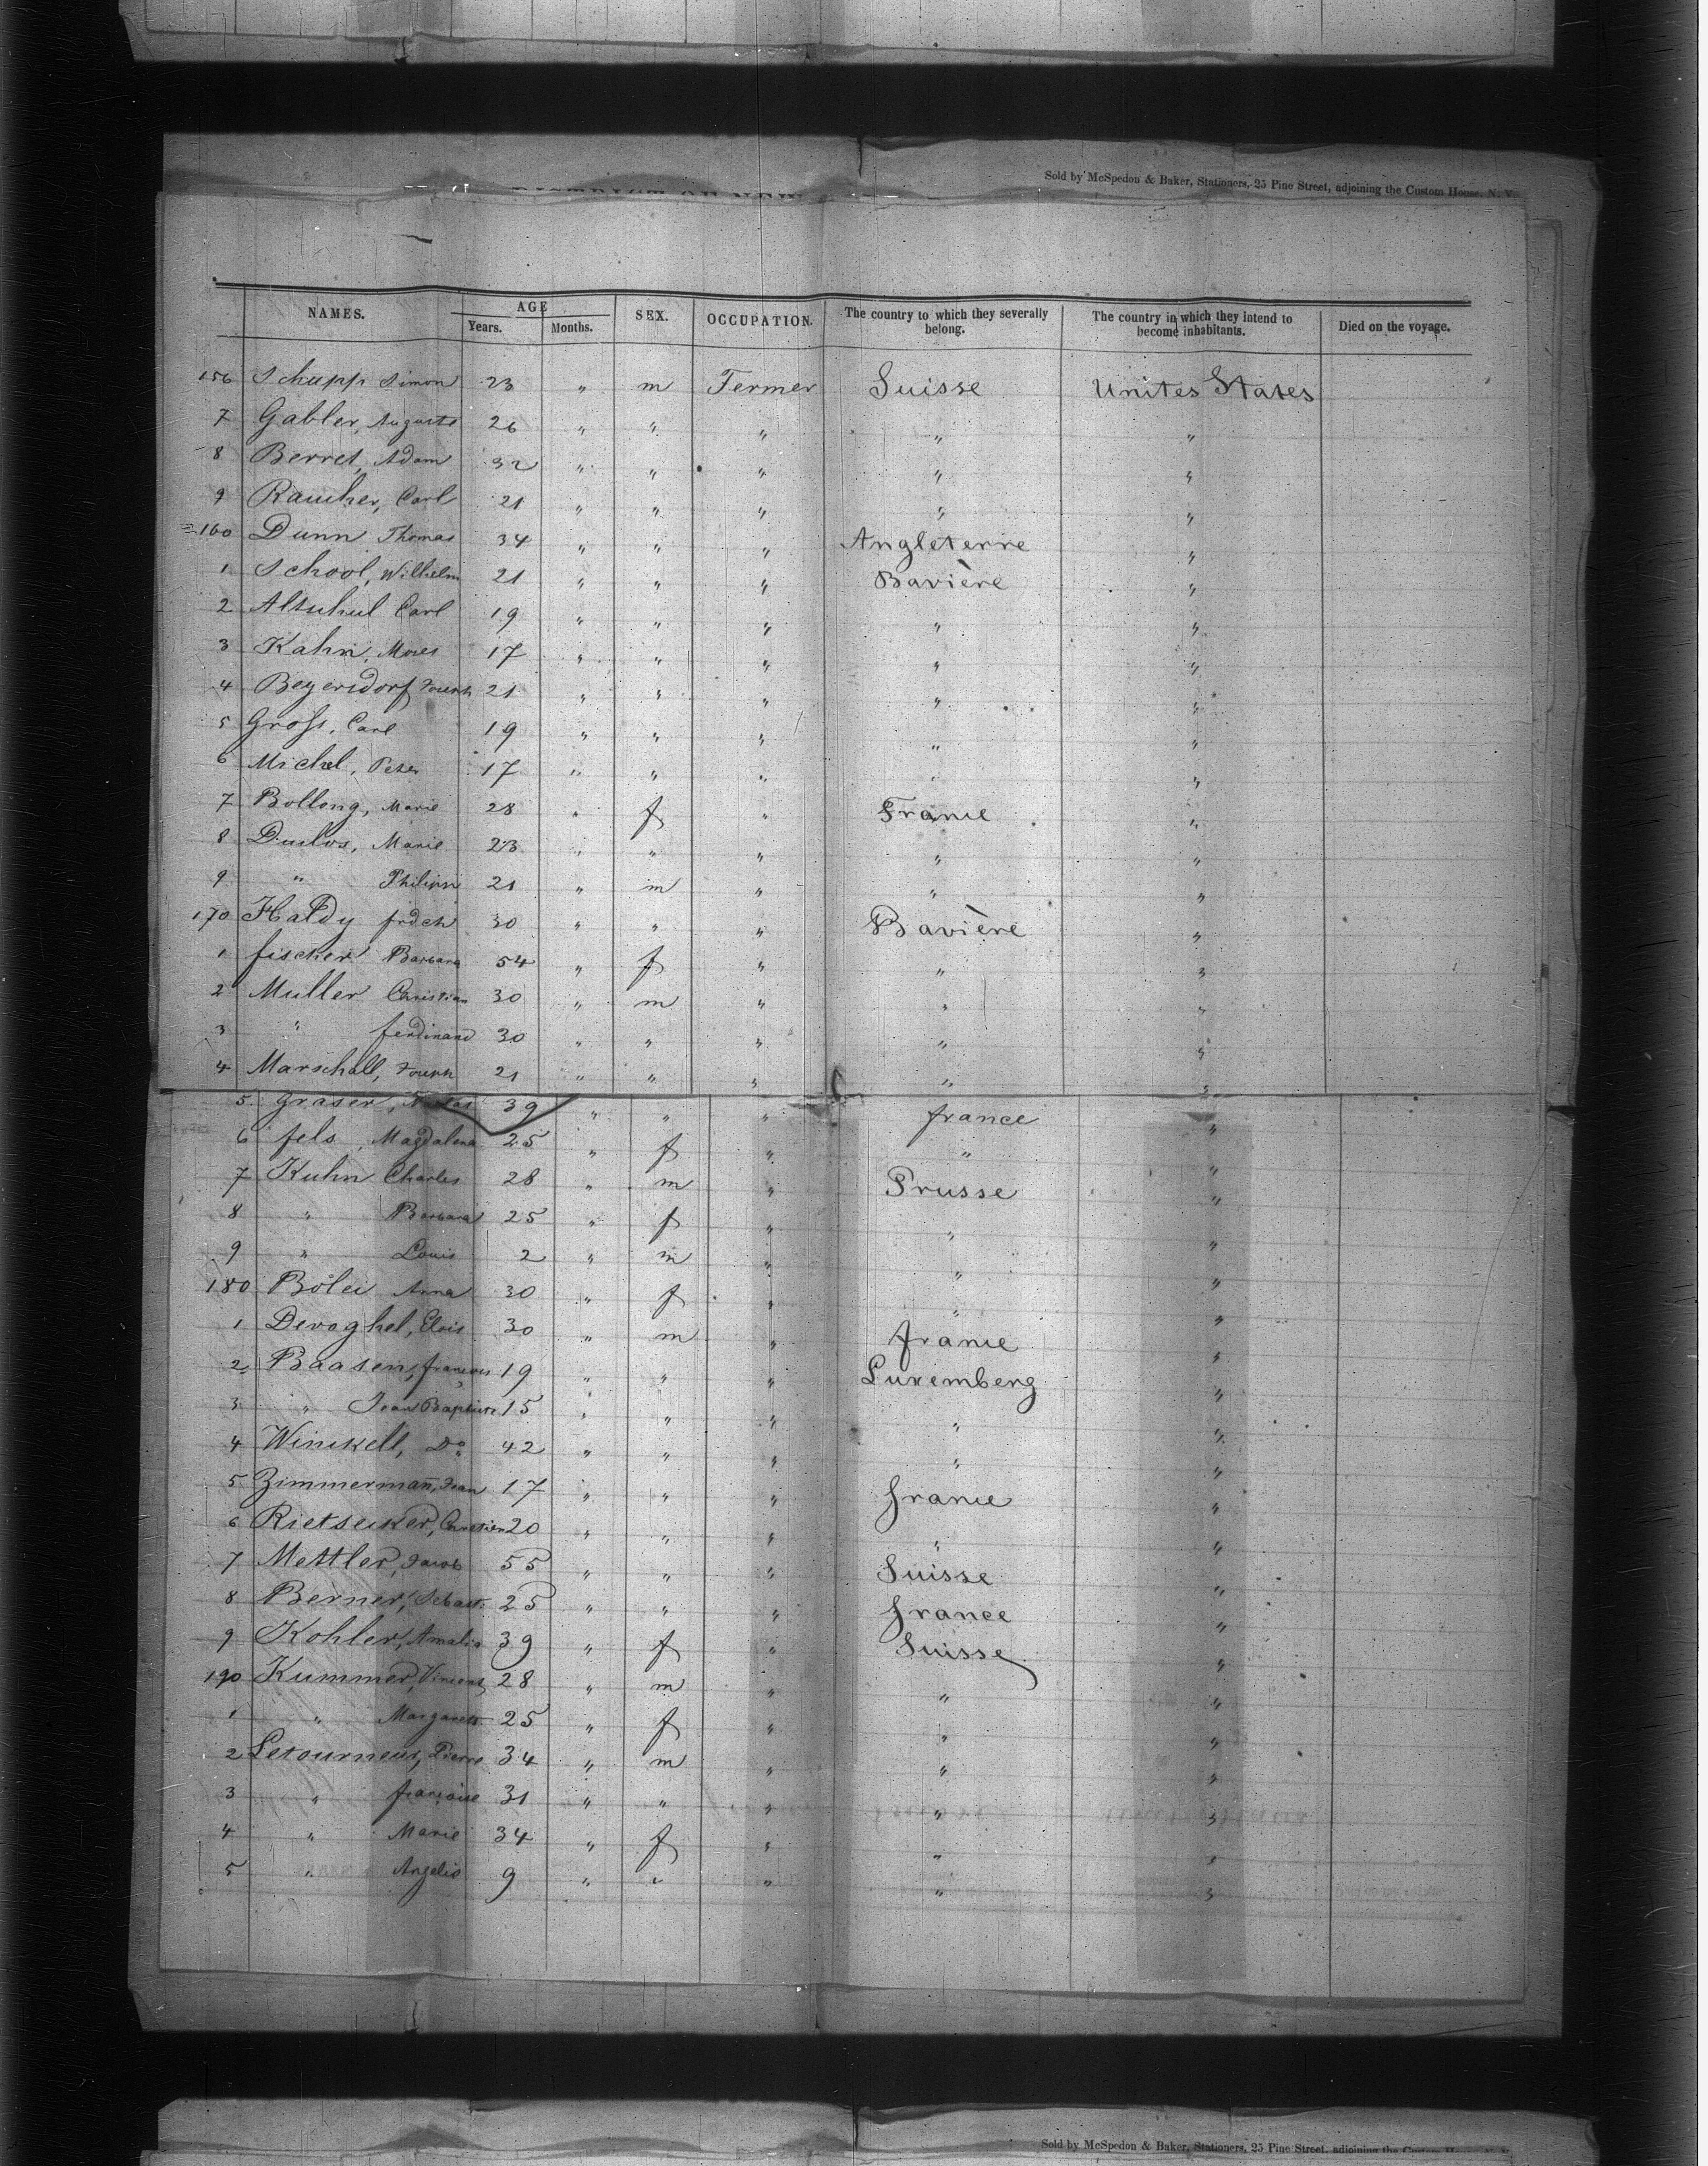 DISTRICT OF NEW
Sold by McSpedon & Baker, Stationers, 25 Pine Street, adjoining the Custom House, N. Y.
NAMES. AGE Years. Months. SEX. OCCUPATION. The country to which they severally belong. The country in which they intend to become inhabitants. Died on the voyage.
156 Schupp Simon 23 " m Fermer Suisse Unites States
7 Gabler, Auguste 26 " " " " "
8 Berret, Adam 32 " " " " "
9 Raucher, Carl 21 " " " " "
160 Dunn Thomas 34 " " " Angleterre "
1 School, Wilhelm 21 " " " Bavière "
2 Altschul Carl 19 " " " " "
3 Kahn, Moses 17 " " " " "
4 Beyersdorf Joseph 21 " " " " "
5 Gross, Carl 19 " " " " "
6 Michel, Peter 17 " " " " "
7 Bollong, Marie 28 " f " France "
8 Duclos, Marie 23 " " " " "
9 " Philipp 21 " m " " "
170 Haldy frdch 30 " " " Bavière "
1 fischer Barbara 54 " f " " "
2 Muller Christian 30 " m " " "
3 " ferdinand 30 " " " " "
4 Marschall, Joseph 21 " " " " "
5 Graser, 39 " " " france "
6 fels, Magdalena 25 " f " " "
7 Kuhn Charles 28 " m " Prusse "
8 " Barbara 25 " f " " "
9 " Louis 2 " m " " "
180 Bölei Anna 30 " f " " "
1 Devoghel, Elois 30 " m " france "
2 Baasen, françois 19 " " " Luxemberg "
3 " Jean Baptiste 15 " " " " "
4 Winckell, Do 42 " " " " "
5 Zimmermañ, Jean 17 " " " france "
6 Rietsecker, Christien 20 " " " " "
7 Mettler, Jacob 55 " " " Suisse "
8 Berner, Sebast. 25 " " " france "
9 Kohler, Amalia 39 " f " Suisse "
190 Kummer, Vincent 28 " m " " "
1 " Margareth 25 " f " " "
2 Letourneux, Pierre 34 " m " " "
3 " françoise 31 " " " " "
4 " Marie 34 " f " " "
5 " Angelis 9 " " " " "
Sold by McSpedon & Baker, Stationers, 25 Pine Street, adjoining the Custom House, N. Y.